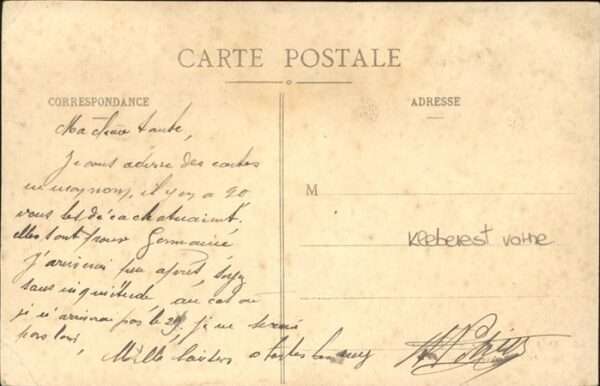 CARTE POSTALE
CORRESPONDANCE
ADRESSE
Ma chère tante,
Je vous adresse des cartes
il y en a 20
vous les
elles sont pour Germaine
J'arriverai peu après, soyez
sans inquiétude au cas où
je n'arriverai pas le 29. je ne serais
pas loin
Mille baisers a toutes
M
Kleberest votre